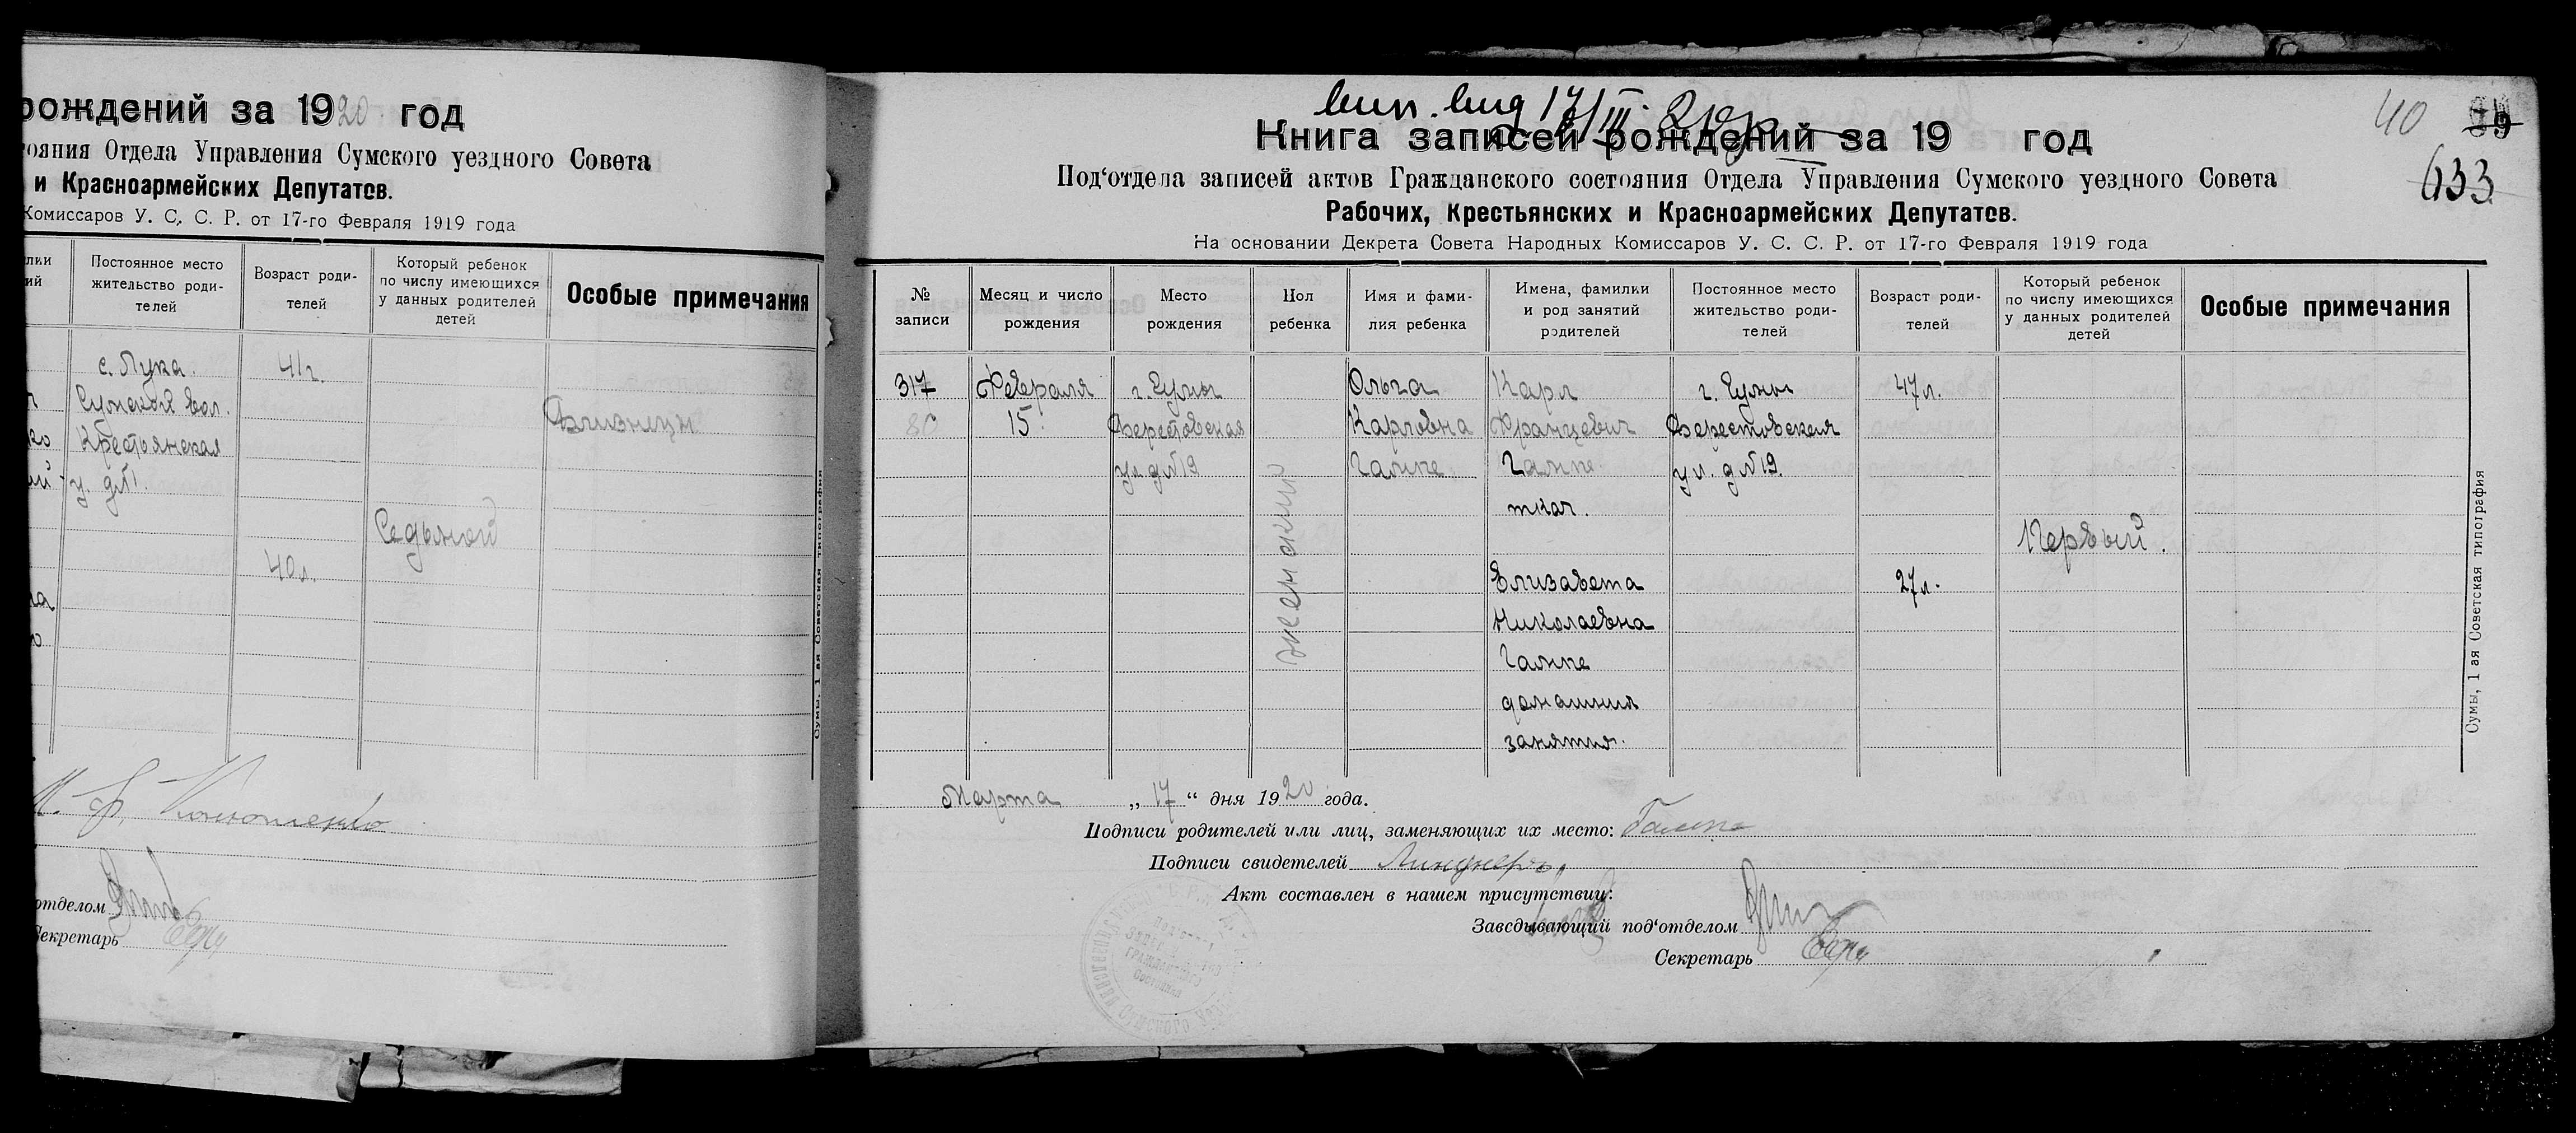 рождений за 1920 год
ояния Отдела Управления Сумского уездного Совета
и Красноармейских Депутатов.
Комиссаров У. С. С. Р. от 17-го Февраля 1919 года
Постоянное место жительство роди-телей
Возраст роди-телей
Который ребенок по числу имеющихся у данных родителей детей
Особые примечания
с. Лука.
41 г.
Сумской вол.
Близнецы
Крестьянская
у. д№1.
Седьмой
40 л.
отделом
Секретарь
Сумы, 1 ая Советская типография
17/III
40
39
633
Книга записей рождений за 19 год
Под‘отдела записей актов Гражданского состояния Отдела Управления Сумского уездного Совета
Рабочих, Крестьянских и Красноармейских Депутатов.
На основании Декрета Совета Народных Комиссаров У. С. С. Р. от 17-го Февраля 1919 года
№ записи
Месяц и число рождения
Место рождения
Пол ребенка
Имя и фами-лия ребенка
Имена, фамилии и род занятий родителей
Постоянное место жительство роди-телей
Возраст роди-телей
Который ребенок по числу имеющихся у данных родителей детей
Особые примечания
317 Февраля г. Сумы Ольга Карл г. Сумы 47 л.
80 15. Берестовская Карловна Францевич Берестовская
ул. д№19 Гампе Гампе ул. д№19.
женский
ткач.
Первый.
Елизавета 27 л.
Николаевна
Гампе
домашния
занятия.
Сумы, 1 ая Советская типография
Марта „17“ дня 1920 года.
Подписи родителей или лиц, заменяющих их место: Гампе
Подписи свидетелей Линднеръ
Акт составлен в нашем присутствии:
Заведывающий под‘отделом
Секретарь